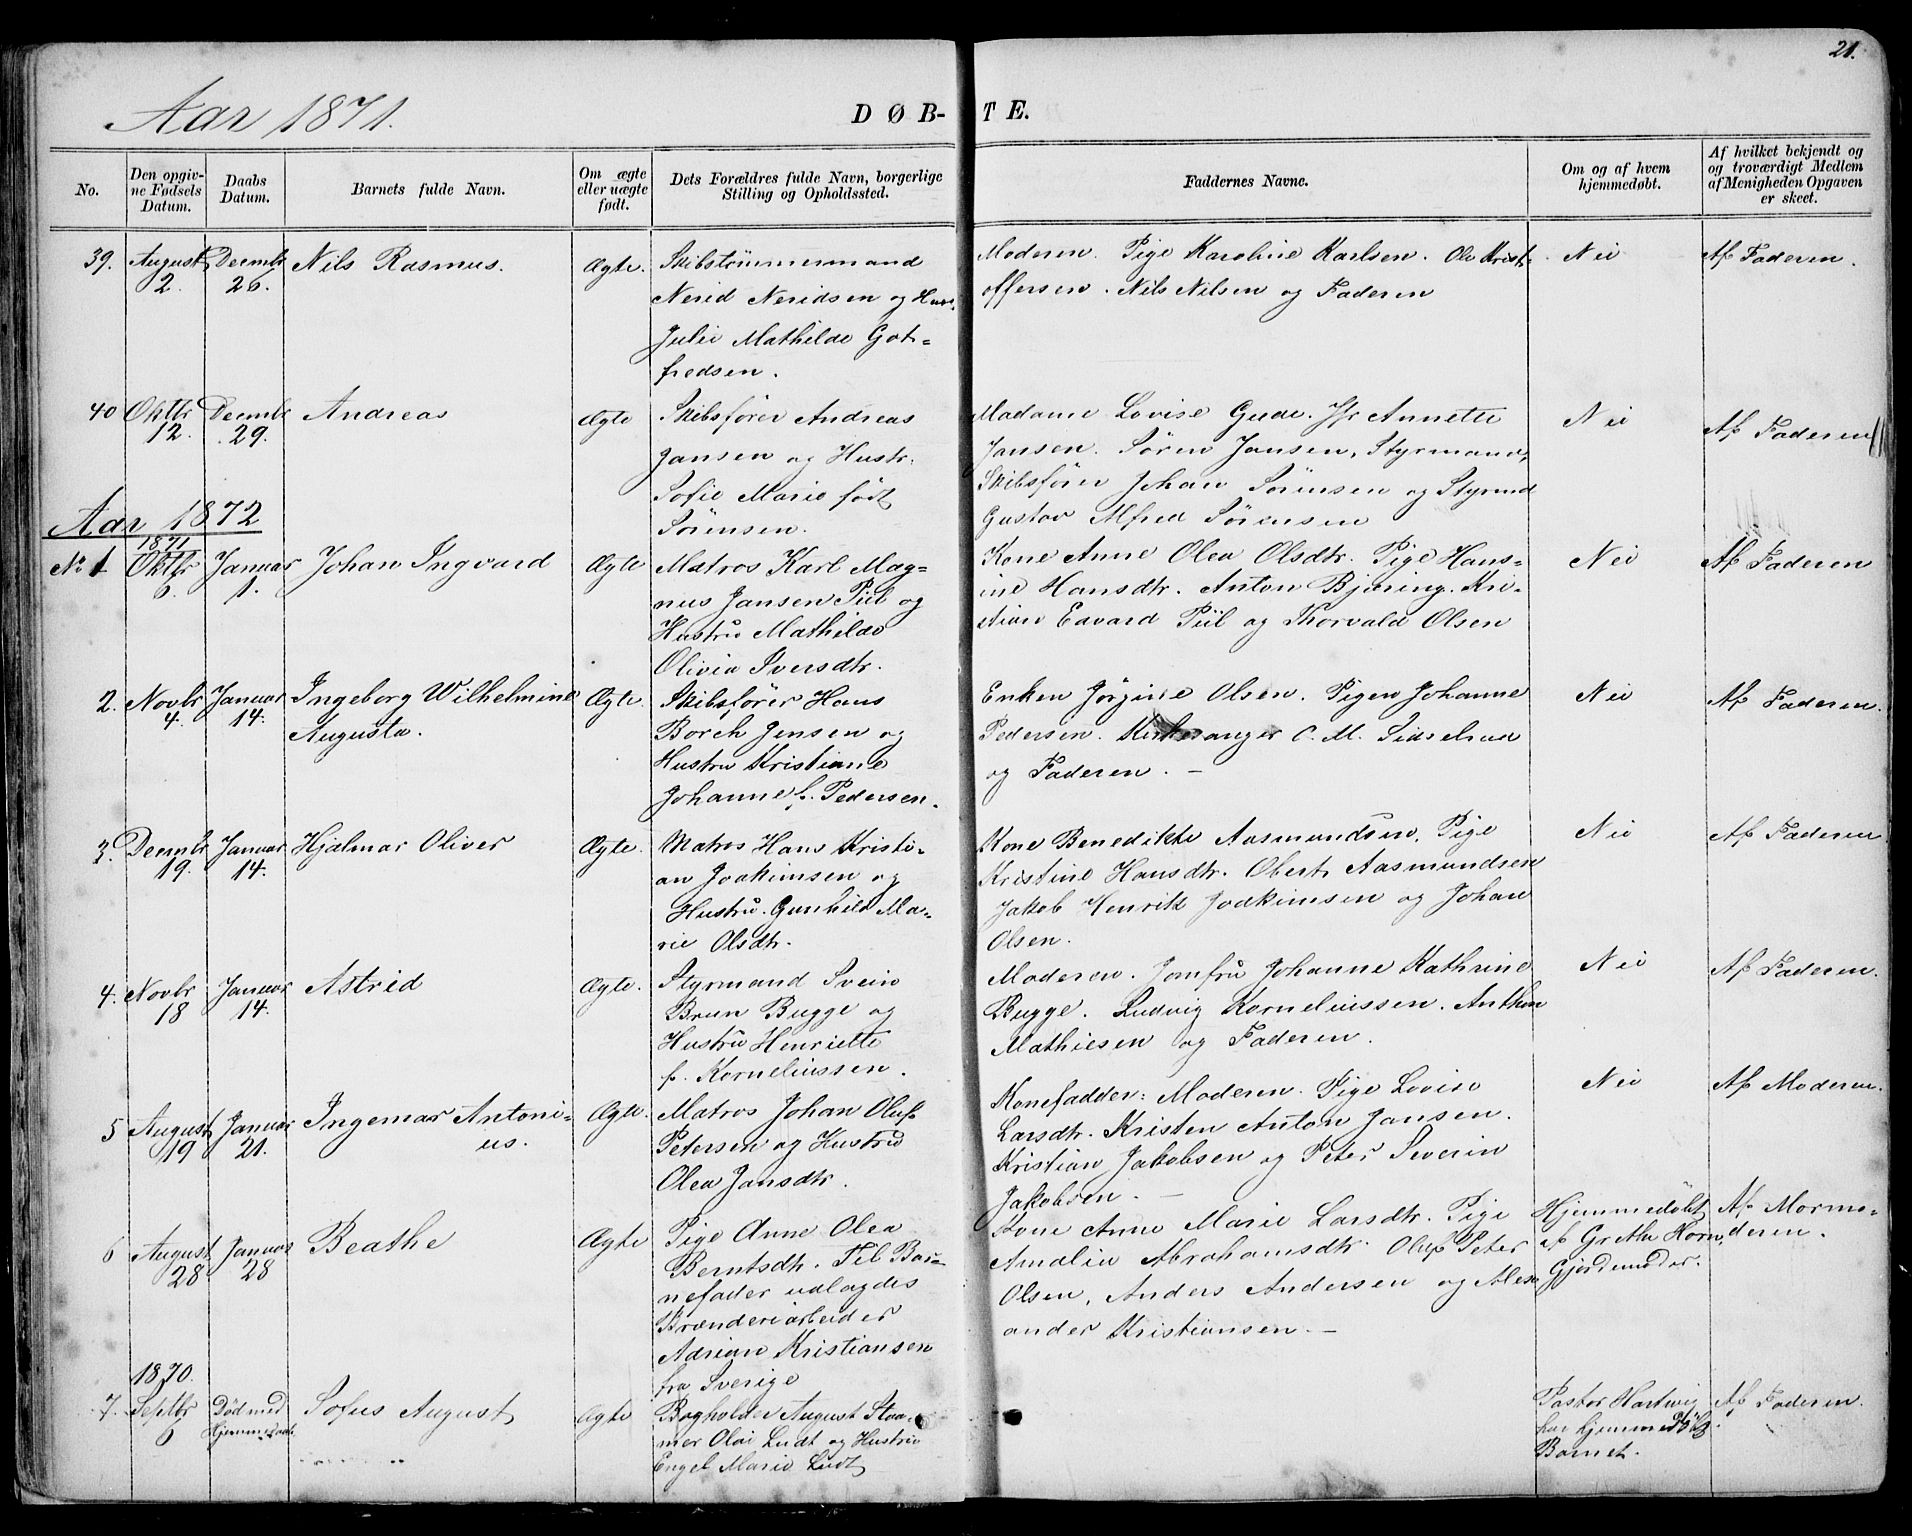 21.
Aar 1871.
DØB-TE.
No.
Den opgiv-
ne Fødsels
Datum.
Daabs
Datum.
Barnets fulde Navn.
Om ægte
eller uægte
født.
Dets Forældres fulde Navn, borgerlige
Stilling og Opholdssted.
Faddernes Navne.
Om og af hvem
hjemmedøbt.
Af hvilket bekjendt og
og troværdigt Medlem
af Menigheden Opgaven
er skeet.
39.
August
2.
Decmbr
26.
Nils Rasmus.
Ægte.
Skibstömmermand
Nerid Neridsen og Hust.
Julie Mathilde Got-
fredsen.
Moderen. Pige Karoline Karlsen. Ole Krist-
offersen. Nils Nilsen og Faderen
Nei
Af Faderen.
40
Oktbr
12.
Decmbr
29.
Andreas
Ægte
Skibsfører Andreas
Jansen og Hustr.
Sofie Marie født
Sörensen.
Madame Lovise Gude. Jfr Annette
Jansen. Sören Jansen, Styrmand,
Skibsfører Johan Sörensen og Styrmd
Gustav Alfred Sörensen
Nei
Af Faderen
Aar 1872
1871
No 1
Oktbr
6.
Januar
1.
Johan Ingvard
Ægte
Matros Karl Mag-
nus Jansen Piil og
Hustru Mathilde
Olivia Iversdtr.
Kone Anne Olea Olsdtr. Pige Hans-
ine Hansdtr. Anton Björing. Kri-
stian Edvard Piil og Thorvald Olsen
Nei
Af Faderen
2.
Novbr
4.
Januar
14.
Ingeborg Wilhelmine
Augusta.
Ægte.
Skibsfører Hans
Borch Jensen og
Hustru Kristiane
Johanne f. Pedersen.
Enken Jörgine Olsen. Pigen Johanne
Pedersen. Kirkesanger C. M. Sidselrud
og Faderen. -
Nei
Af Faderen.
3.
Decmbr
19.
Januar
14.
Hjalmar Oliver
Ægte.
Matros Hans Kristi-
an Joakimsen og
Hustru Gunhild Ma-
rie Olsdtr.
Kone Benedikte Aasmundsen. Pige
Kristine Hansdtr. Obert Aasmundsen
Jakob Henrik Joakimsen og Johan
Olsen.
Nei
Af Faderen
4.
Novbr
18
Januar
14.
Astrid
Ægte.
Styrmand Svein
Brun Bugge og
Hustru Henriette
f. Korneliussen.
Moderen. Jomfru Johanne Kathrine
Bugge. Ludvig Korneliussen. Anthon
Mathiesen og Faderen.
Nei
Af Faderen.
5
August
19
Januar
21.
Ingemar Antoni-
us.
Ægte.
Matros Johan Oluf
Petersen og Hustru
Olea Jansdtr.
Konefadder: Moderen. Pige Lovise
Larsdtr. Kristen Anton Jansen.
Kristian Jakobsen og Peter Severin
Jakobsen. -
Nei
Af Moderen.
6
August
28
Januar
28
Beathe
Ægte
Pige Anne Olea
Berntsdtr. Til Bar-
nefader udlagdes
Brænderiarbeider
Adrian Kristiansen
fra Sverige
Kone Anne Marie Larsdtr. Pige
Amalie Abrahamsdtr. Oluf Peter
Olsen, Anders Andersen og Alex-
ander Kristiansen. -
Hjemmedöbt
af Grethe Horn,
Gjordemoder.
Af Mormo-
deren.
1870.
7.
Septbr
6
Död med
Hjemmedaab
Sofus August
Ægte
Bogholder August Stør-
mer Olai Ludt og Hustru
Engel Marie Ludt
Pastor Hartwig
har hjemmedöbt
Barnet.
Af Faderen.